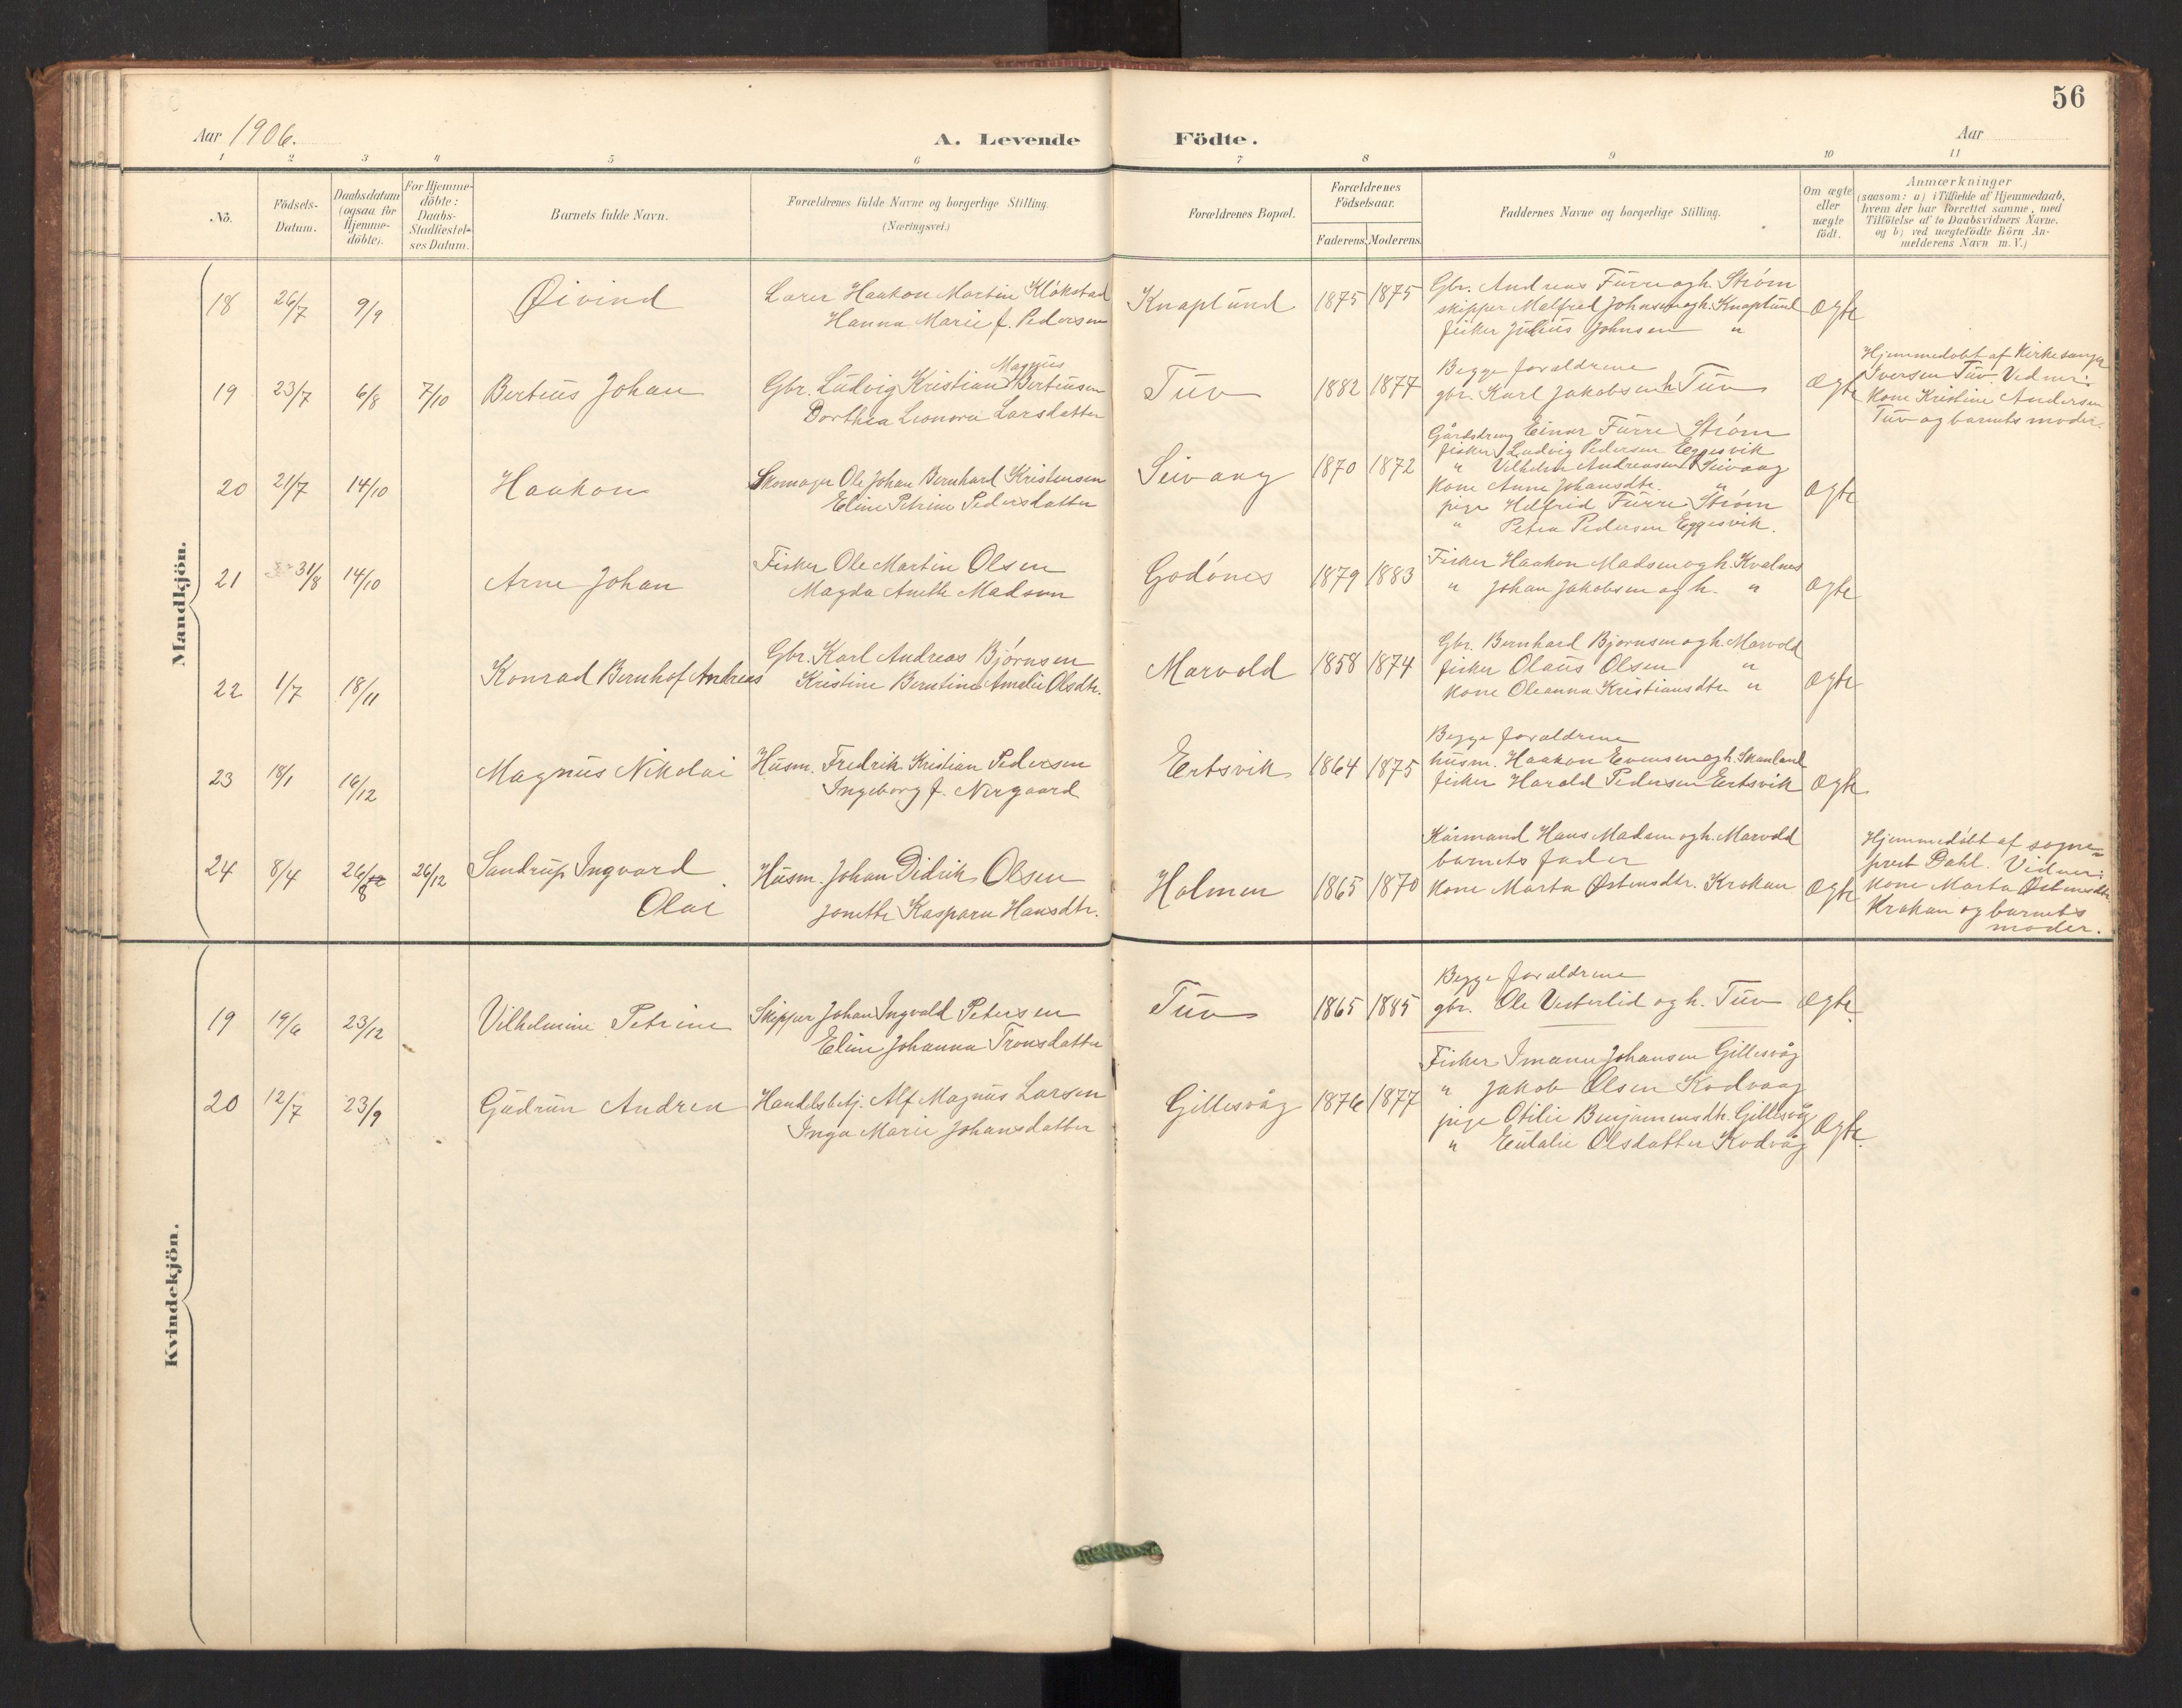 56
Aar 1906.
A. Levende Födte.
Aar
1 2 3 4 5 6 7 8 9 10 11
Nö.
Födsels-
Datum.
Daabsdatum
(ogsaa for
Hjemme-
döbte).
For Hjemme-
döbte:
Daabs-
Stadfæstel-
ses Datum.
Barnets fulde Navn.
Forældrenes fulde Navne og borgerlige Stilling.
(Næringsvei.)
Forældrenes Bopæl.
Forældrenes
Födselsaar.
Faderens. Moderens.
Faddernes Navne og borgerlige Stilling.
Om ægte
eller
uægte
födt.
Anmærkninger
(saasom: a) i Tilfælde af Hjemmedaab,
hvem der har forrettet samme, med
Tilföielse af to Daabsvidners Navne.
og b) ved uægtefödte Börn An-
melderens Navn m. V.)
Mandkjön.
18 26/7 9/9 Øivind
Lærer Haakon Martin Kløkstad
Hanna Marie f. Pedersen
Knaplund 1875 1875
Gbr. Andreas Furre og h. Strøm
skipper Meljred Johnsen og h. Knaplund
fisker Julius Johnsen "
Ægte
19 23/7 6/8 7/10 Berteus Johan
Magnus
Gbr. Ludvig Kristian Berteusen
Dorthea Leonore Larsdatter
Tuv 1882 1877
Begge forældrene
gbr. Karl Jakobsen h. Tuv
Ægte
Hjemmedøbt af Kirkesanger
Iversen Tuv. Vidner:
Kone Kristine Andersen
Tuv og barnets moder.
20 21/7 14/10 Haakon
Skomager Ole Johan Bernhard Kristensen
Eline Petrine Pedersdatter
Seivaag 1870 1872
Gårdsdreng Einar Furre Strøm
fisker Ludvig Pedersen Eggesvik
" Vilhelm Andreassen Seivaag
Kone Anne Johansdtr. "
pige Helfrid Furre Strøm
" Petra Pedersen Eggesvik.
Ægte
21 31/8 14/10 Arne Johan
Fisker Ole Martin Olsen
Magda Anette Madsen
Godönes 1879 1883
Fisker Haakon Madsen og h. Kvalnes
" Johan Jakobsen og h. "
Ægte
22 1/7 18/11 Konrad Bernhof Andreas
Gbr. Karl Andreas Björnsen
Kristine Berntine Amalie Olsdtr.
Marvold 1858 1874
Gbr. Bernhard Bjørnsen og h. Marvold
fisker Olaus Olsen "
kone Oleanna Kristiansdtr. "
Ægte
23 18/1 16/12 Magnus Nikolai
Husm. Fredrik Kristian Pedersen
Ingeborg f. Nergaard
Ertsvik 1864 1875
Begge forældrene
husm. Haakon Evensen og h. Skanland
fisker Harald Pedersen Ertsvik
Ægte
24 8/4 26/8 26/12 Sandrup Ingvard
Olai
Husm. Johan Didrik Olsen
Jonette Kaspara Hansdtr.
Holmen 1865 1870
Kårmand Hans Madsen og h. Marvold
barnets fader
kone Marta Østensdtr. Krokan
Ægte
Hjemmedøbt af sogne-
prest Dahl. Vidner:
kone Marta Østensdtr.
Krokan og barnets
moder.
Kvindekjön.
19 19/6 23/12 Vilhelmine Petrine
Skipper Johan Ingvald Petersen
Eline Johanna Tronsdatter
Tuv 1865 1885
Begge forældrene
gbr. Ole Vesterlid og h. Tuv
Ægte.
20 12/7 23/9 Gudrun Andrea
Handelsbetj. Alf Magnus Larsen
Inga Marie Johansdatter
Gillesvåg 1876 1877
Fisker Imanu Johansen Gillesvåg
" Jakob Olsen Kodvaag
pige Otilie Benjaminsdtr. Gillesvåg
" Eulalie Olsdatter Kodvåg
Ægte.